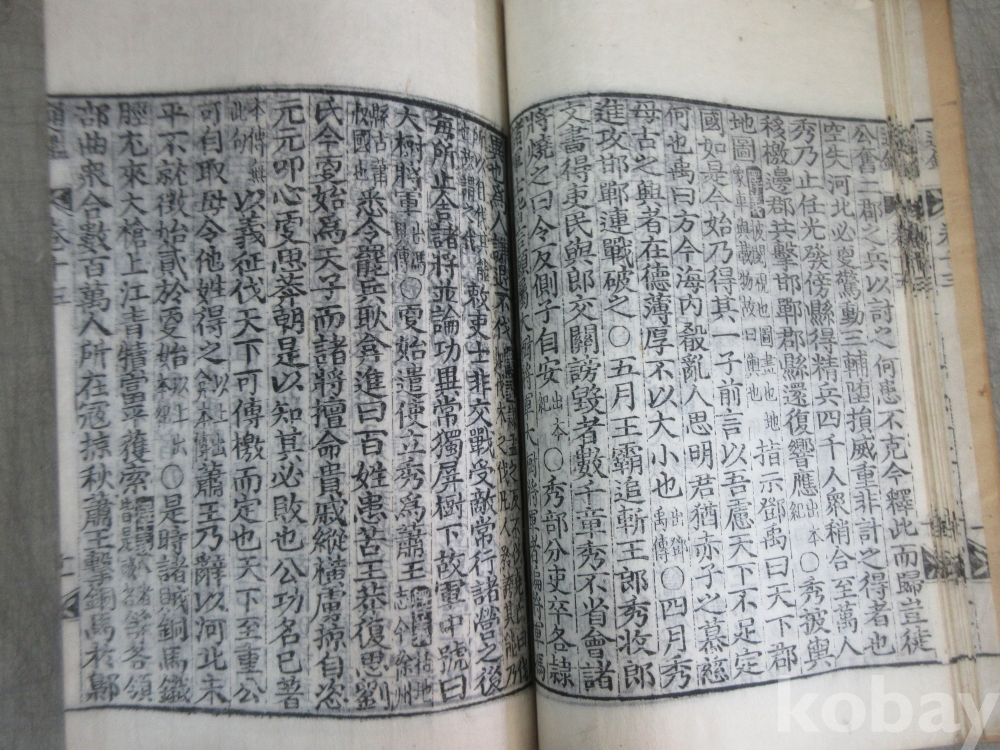 公舊一郡之兵以討之何患不克今釋此而歸豈徒
空失河北必更驚動三輔墮損威重非計之得者也
秀乃止任光發傍縣得精兵四千人衆稍合至萬人
移檄邊郡共擊邯鄲郡縣還復響應出本紀〇秀披輿
地圖指示鄧禹曰天下郡
國如是今始乃得其一子前言以吾慮天下不足定
何也禹曰方今海內殽亂人思明君猶赤子之慕慈
母古之興者在德薄厚不以大小也出鄧禹傳〇四月秀
進攻邯鄲連戰破之〇五月王霸追斬王郎秀收郎
文書得吏民與郎交關謗毀者數千章秀不省會諸
將燒之曰令反側子自安出本紀〇秀部分吏卒各隸
大將軍
敕吏士非交戰受敵常行諸營之後
每所止舍諸將並論功異常獨屏樹下故軍中號曰
大樹將軍〇更始遣使立秀爲蕭王
悉令罷兵耿弇進曰百姓患苦王莽復思劉
氏今更始爲天子而諸將擅命貴戚縱橫虜掠自恣
元元叩心更思莽朝是以知其必敗也公功名已著
以義征伐天下可傳檄而定也天下至重公
可自取毋令他姓得之蕭王乃辭以河北未
平不就徵始貳於更始〇是時諸賊銅馬鐵
脛尤來大槍上江青犢富平獲索等各領
部曲衆合數百萬人所在寇掠秋蕭王擊銅馬於鄡
kobay